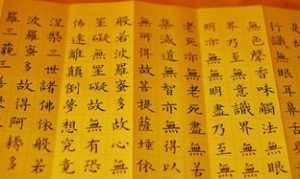 行識無眼耳鼻
無色聲香味觸法
界乃至無意識界
亦無無明盡乃至無
老死亦無老死盡
集滅道無智亦無得以
無所得故菩提薩埵依
般若波羅蜜多故心無
罣礙無罣礙故無有恐
怖遠離顛倒夢想究竟
涅槃三世諸佛依般若
波羅蜜多故得阿耨多
羅三藐三菩提